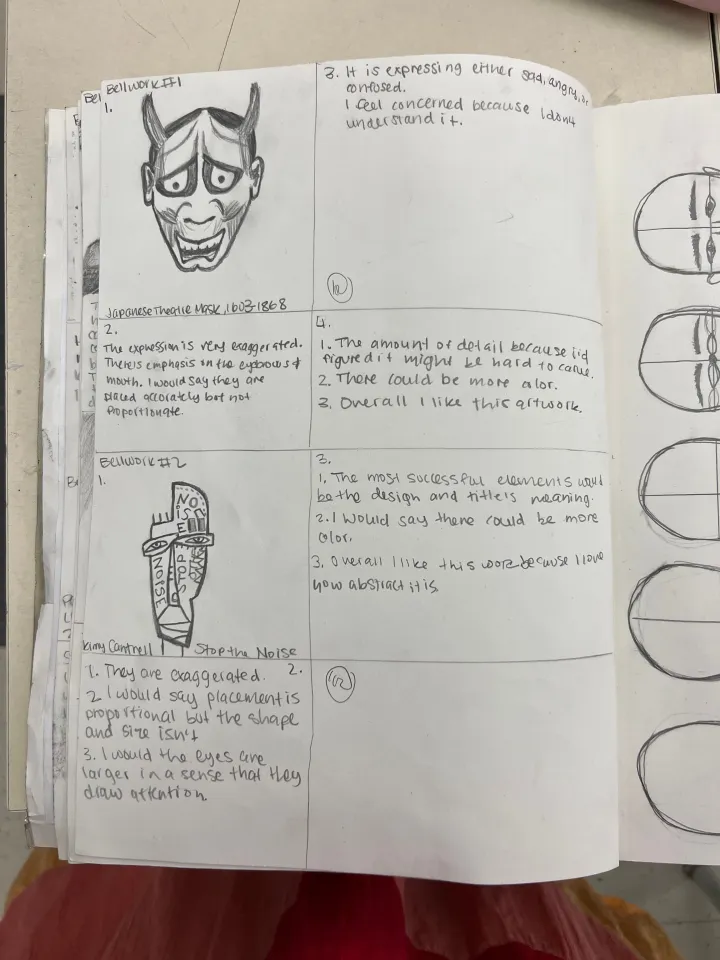 Bellwork #1
1.
Japanese Theatre Mask, 1603-1868
3. It is expressing either sad, angry, or
confused.
I feel concerned because I don't
understand it.
10
2.
The expression is very exaggerated.
There is emphasis on the eyebrows &
mouth. I would say they are
placed accurately but not
proportionate.
4.
1. The amount of detail because i'd
figured it might be hard to carve.
2. There could be more color.
3. Overall I like this artwork.
Bellwork #2
1.
NOISE
STOP THE
NOISE
Kimmy Cantrell Stop the Noise
3.
1. The most successful elements would
be the design and title's meaning.
2. I would say there could be more
color.
3. Overall I like this work because I love
how abstract it is
2.
1. They are exaggerated.
2 I would say placement is
proportional but the shape
and size isn't
3. I would the eyes are
larger in a sense that they
draw attention.
10